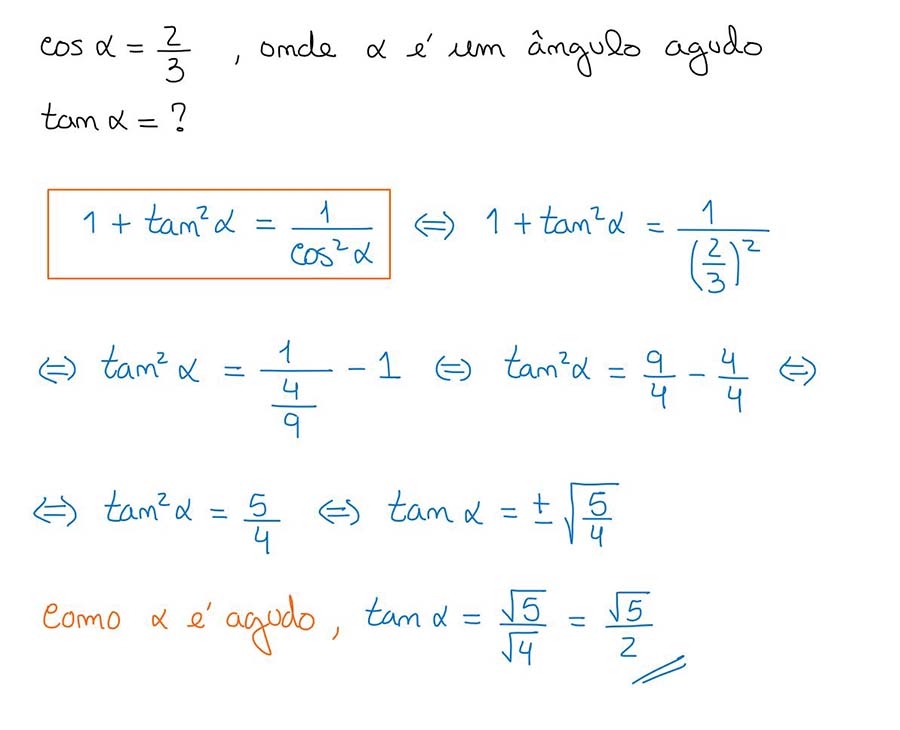 cos α = 2/3 , onde α é um ângulo agudo
tan α = ?
1 + tan²α = 1/cos²α ⇔ 1 + tan²α = 1/(2/3)²
⇔ tan²α = 1/(4/9) − 1 ⇔ tan²α = 9/4 − 4/4 ⇔
⇔ tan²α = 5/4 ⇔ tan α = ±√(5/4)
Como α é agudo, tan α = √5/√4 = √5/2